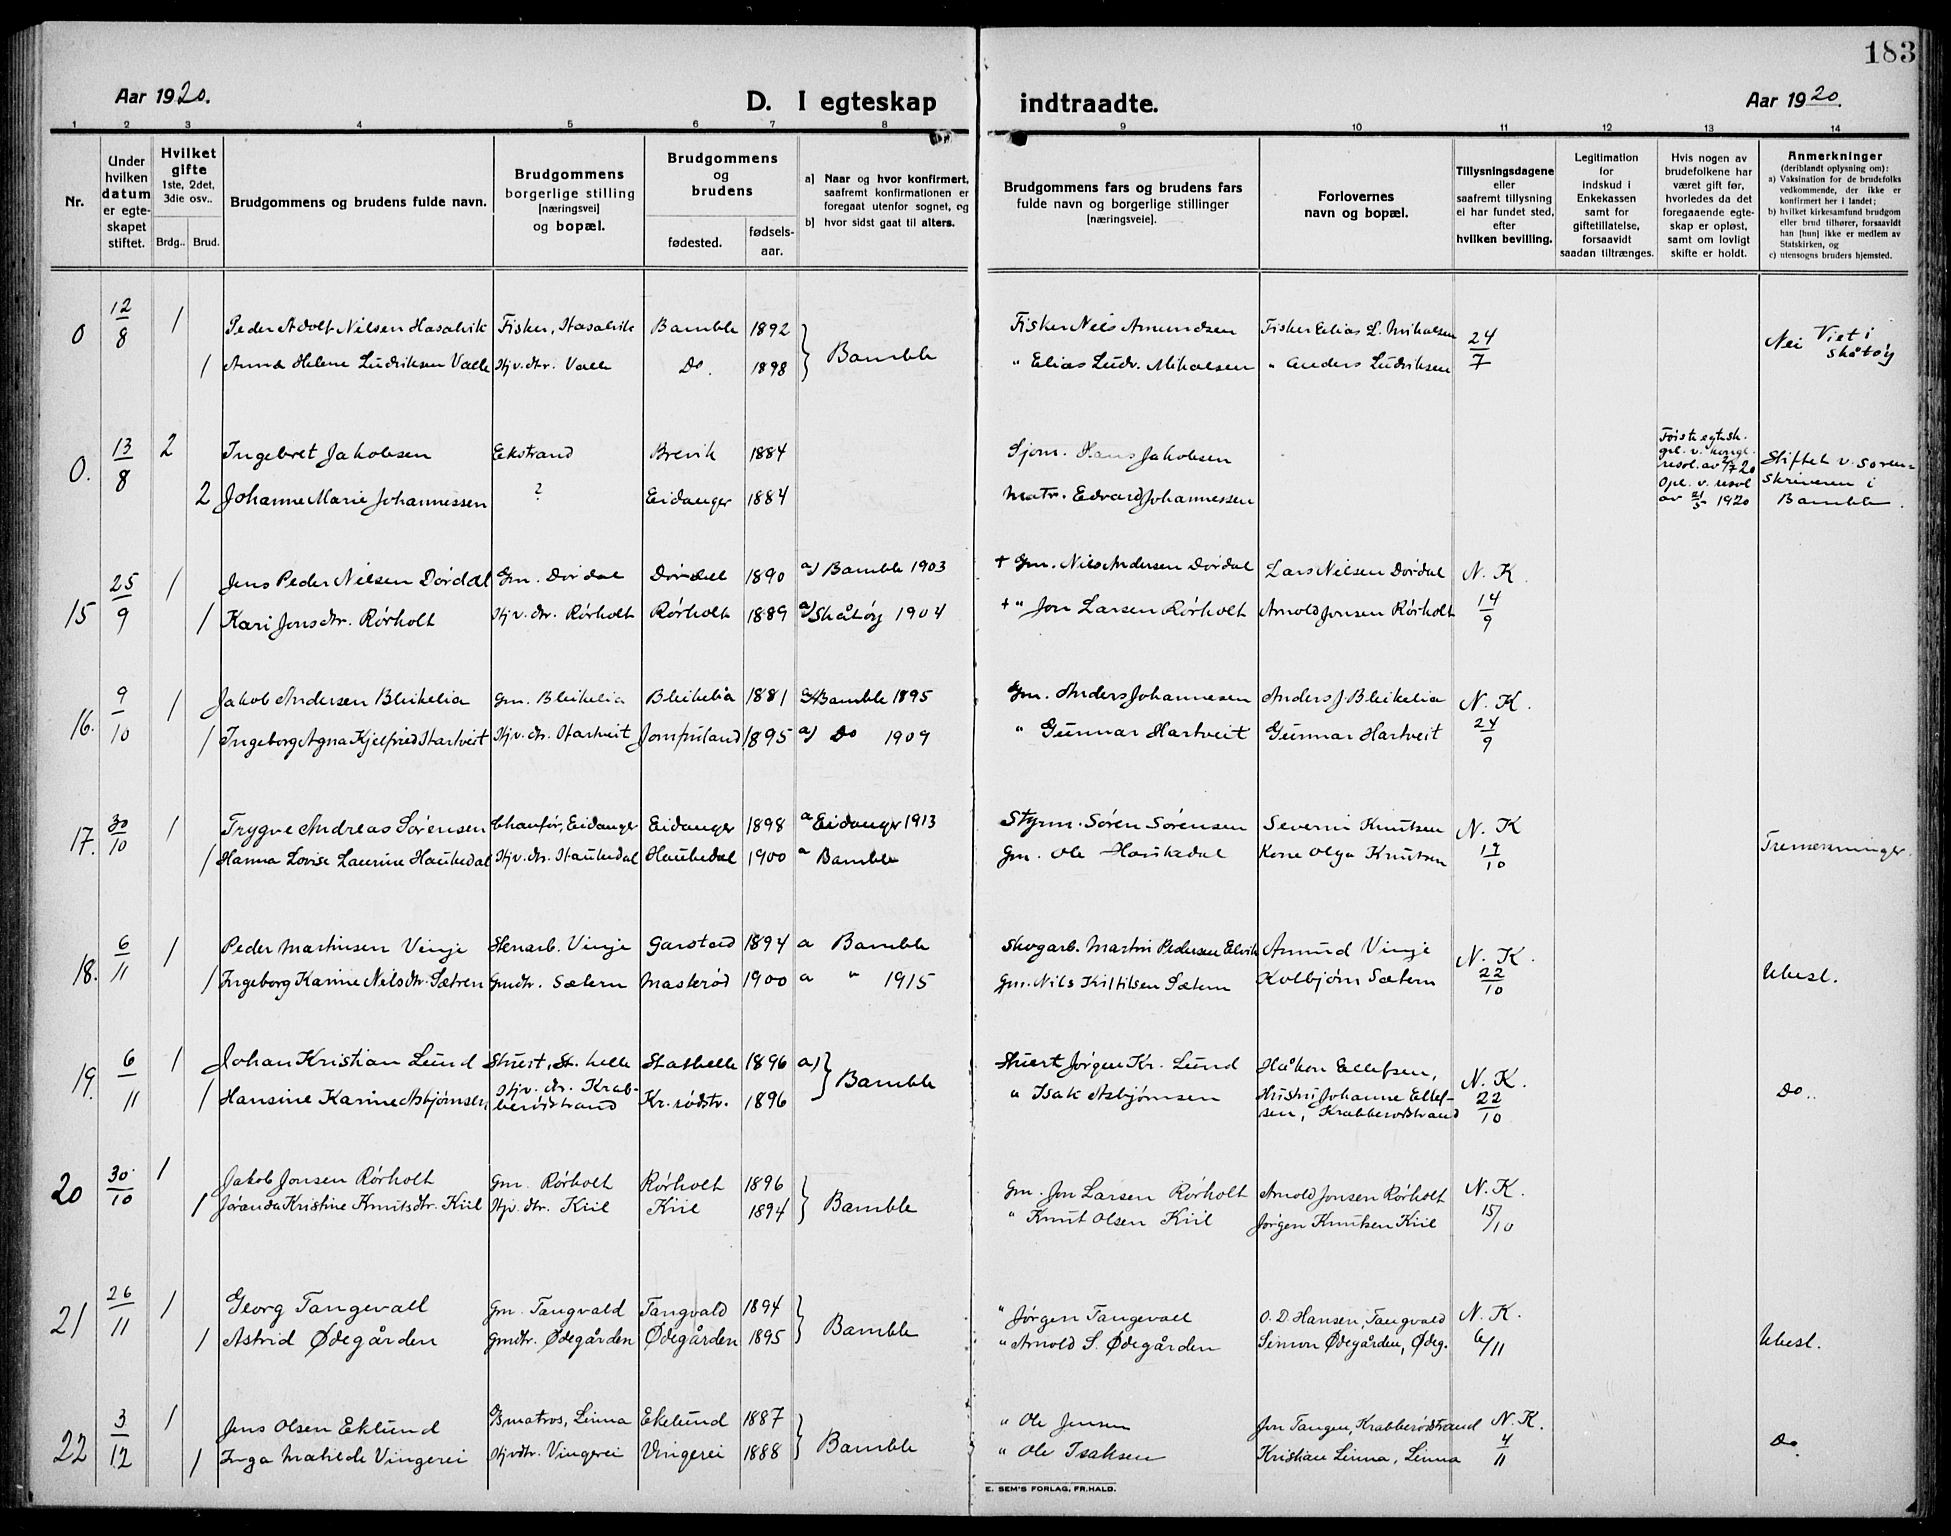 183
Aar 1920.
D. I egteskap indtraadte.
Aar 1920.
1 2 3 4 5 6 7 8 9 10 11 12 13 14
Nr.
Under hvilken datum er egteskapet stiftet.
Hvilket gifte 1ste, 2det, 3die osv..
Brdg.. Brud.
Brudgommens og brudens fulde navn.
Brudgommens borgerlige stilling [næringsvei] og bopæl.
Brudgommens og brudens
fødested.
fødsels-aar.
a) Naar og hvor konfirmert, saafremt konfirmationen er foregaat utenfor sognet, og
b) hvor sidst gaat til alters.
Brudgommens fars og brudens fars fulde navn og borgerlige stillinger [næringsveie].
Forlovernes navn og bopæl.
Tillysningsdagene eller saafremt tillysning ei har fundet sted, efter hvilken bevilling.
Legitimation for indskud i Enkekassen samt for giftetillatelse, forsaavidt saadan tiltrænges.
Hvis nogen av brudefolkene har været gift før, hvorledes da det foregaaende egteskap er opløst, samt om lovligt skifte er holdt.
Anmerkninger (deriblandt oplysning om):
a) Vaksination for de brudefolks vedkommende, der ikke er konfirmert her i landet;
b) hvilket kirkesamfund brudgom eller brud tilhører, forsaavidt han [hun] ikke er medlem av Statskirken, og
c) utensogns bruders hjemsted.
0 12/8 1 Peder Adolf Nilsen Hasalvik Fisker, Hasalvik Bamble 1892 Fisker Nils Amundsen Fisker Elias L. Mikalsen 24/7 Nei Viet i Skåtøy
1 Anna Helene Ludviksen Valle Hjv. dtr. Valle Do. 1898 } Bamble " Elias Ludv. Mikalsen " Anders Ludviksen
0. 13/8 2 Ingebret Jakobsen Ekstrand Brevik 1884 Sjøm. Hans Jakobsen Første egtesk. Stiftet v. Sorenskriveren i Bamble.
2 Johanne Marie Johannessen ? Eidanger 1884 Matr. Edvard Johannessen opl. v. resol av 21/5 1920
15 25/9 1 Jens Peder Nilsen Dørdal Gm. Dørdal Dørdal 1890 a) Bamble 1903 + Gm. Nils Andersen Dørdal Lars Nilsen Dørdal N. K.
1 Kari Jonsdtr. Rørholt Hjv. dtr. Rørholt Rørholt 1889 a) Skåtøy 1904 + " Jon Larsen Rørholt Arnold Jonsen Rørholt 14/9
16. 9/10 1 Jakob Andersen Bleikelia Gm. Bleikelia Bleikelia 1881 a) Bamble 1895 Gm. Anders Johannesen Anders J. Bleikelia N. K.
1 Ingeborg Agna Kjelfrid Hartveit Hjv. dtr. Hartveit Jomfruland 1895 a) Do 1909 " Gunnar Hartveit Gunnar Hartveit 24/9
17. 30/10 1 Trygve Andreas Sørensen Chauför, Eidanger Eidanger 1898 a Eidanger 1913 Styrm. Søren Sørensen Severin Knutsen N. K
1 Hanna Lovise Laurine Haukedal Hjv. dtr. Haukedal Haukedal 1900 a Bamble Gm. Ole Haukedal Kone Olga Knutsen 19/10 Tremenninger.
18. 6/11 1 Peder Martinsen Vinje Stenarb. Vinje Garstad 1894 a Bamble Skogarb. Martin Pedersen Elvik Amund Vinje N. K.
1 Ingeborg Karine Nilsdtr. Sætren Gmdtr. Sætern Masterød 1900 a " 1915 Gm. Nils Kittilsen Sætern Kolbjørn Sætern 22/10 Ubesl.
19. 6/11 1 Johan Kristian Lund Stuert, St. helle Stathelle 1896 a) Stuert Jørgen Kr. Lund Håkon Ellefsen, N. K.
1 Hansine Karine Asbjørnsen Hjv. dtr. Krabberødstrand Kr. rødstr. 1896 } Bamble " Isak Asbjørnsen Hustru Johanne Ellefsen, Krabberødstrand 22/10 Do..
20 30/10 1 Jakob Jonsen Rørholt Gm. Rørholt Rørholt 1896 Gm. Jon Larsen Rørholt Arnold Jonsen Rørholt N. K.
1 Jøranda Kristine Knutsdtr. Kiil Hjv. dtr. Kiil Kiil 1894 } Bamble " Knut Olsen Kiil Jørgen Knutsen Kiil 15/10
21 26/11 1 Georg Tangevall Gm. Tangvald Tangvald 1894 " Jørgen Tangevall O. D. Hansen, Tangvald N. K.
1 Astrid Ødegården Gmdtr. Ødegården Ødegården 1895 } Bamble " Arnold S. Ødegården Simon Ødegården, Ødeg. 6/11 Ubesl.
22 3/12 1 Jens Olsen Eklund matros, Linna Ekelund 1887 " Ole Jensen Jon Tangen, Krabberødstrand N. K.
1 Inga Matilde Vingerei Hjvdtr. Vingerei Vingerei 1888 } Bamble " Ole Isaksen Kristian Linna, Linna 4/11 Do.
E. SEM'S FORLAG, FR.HALD.